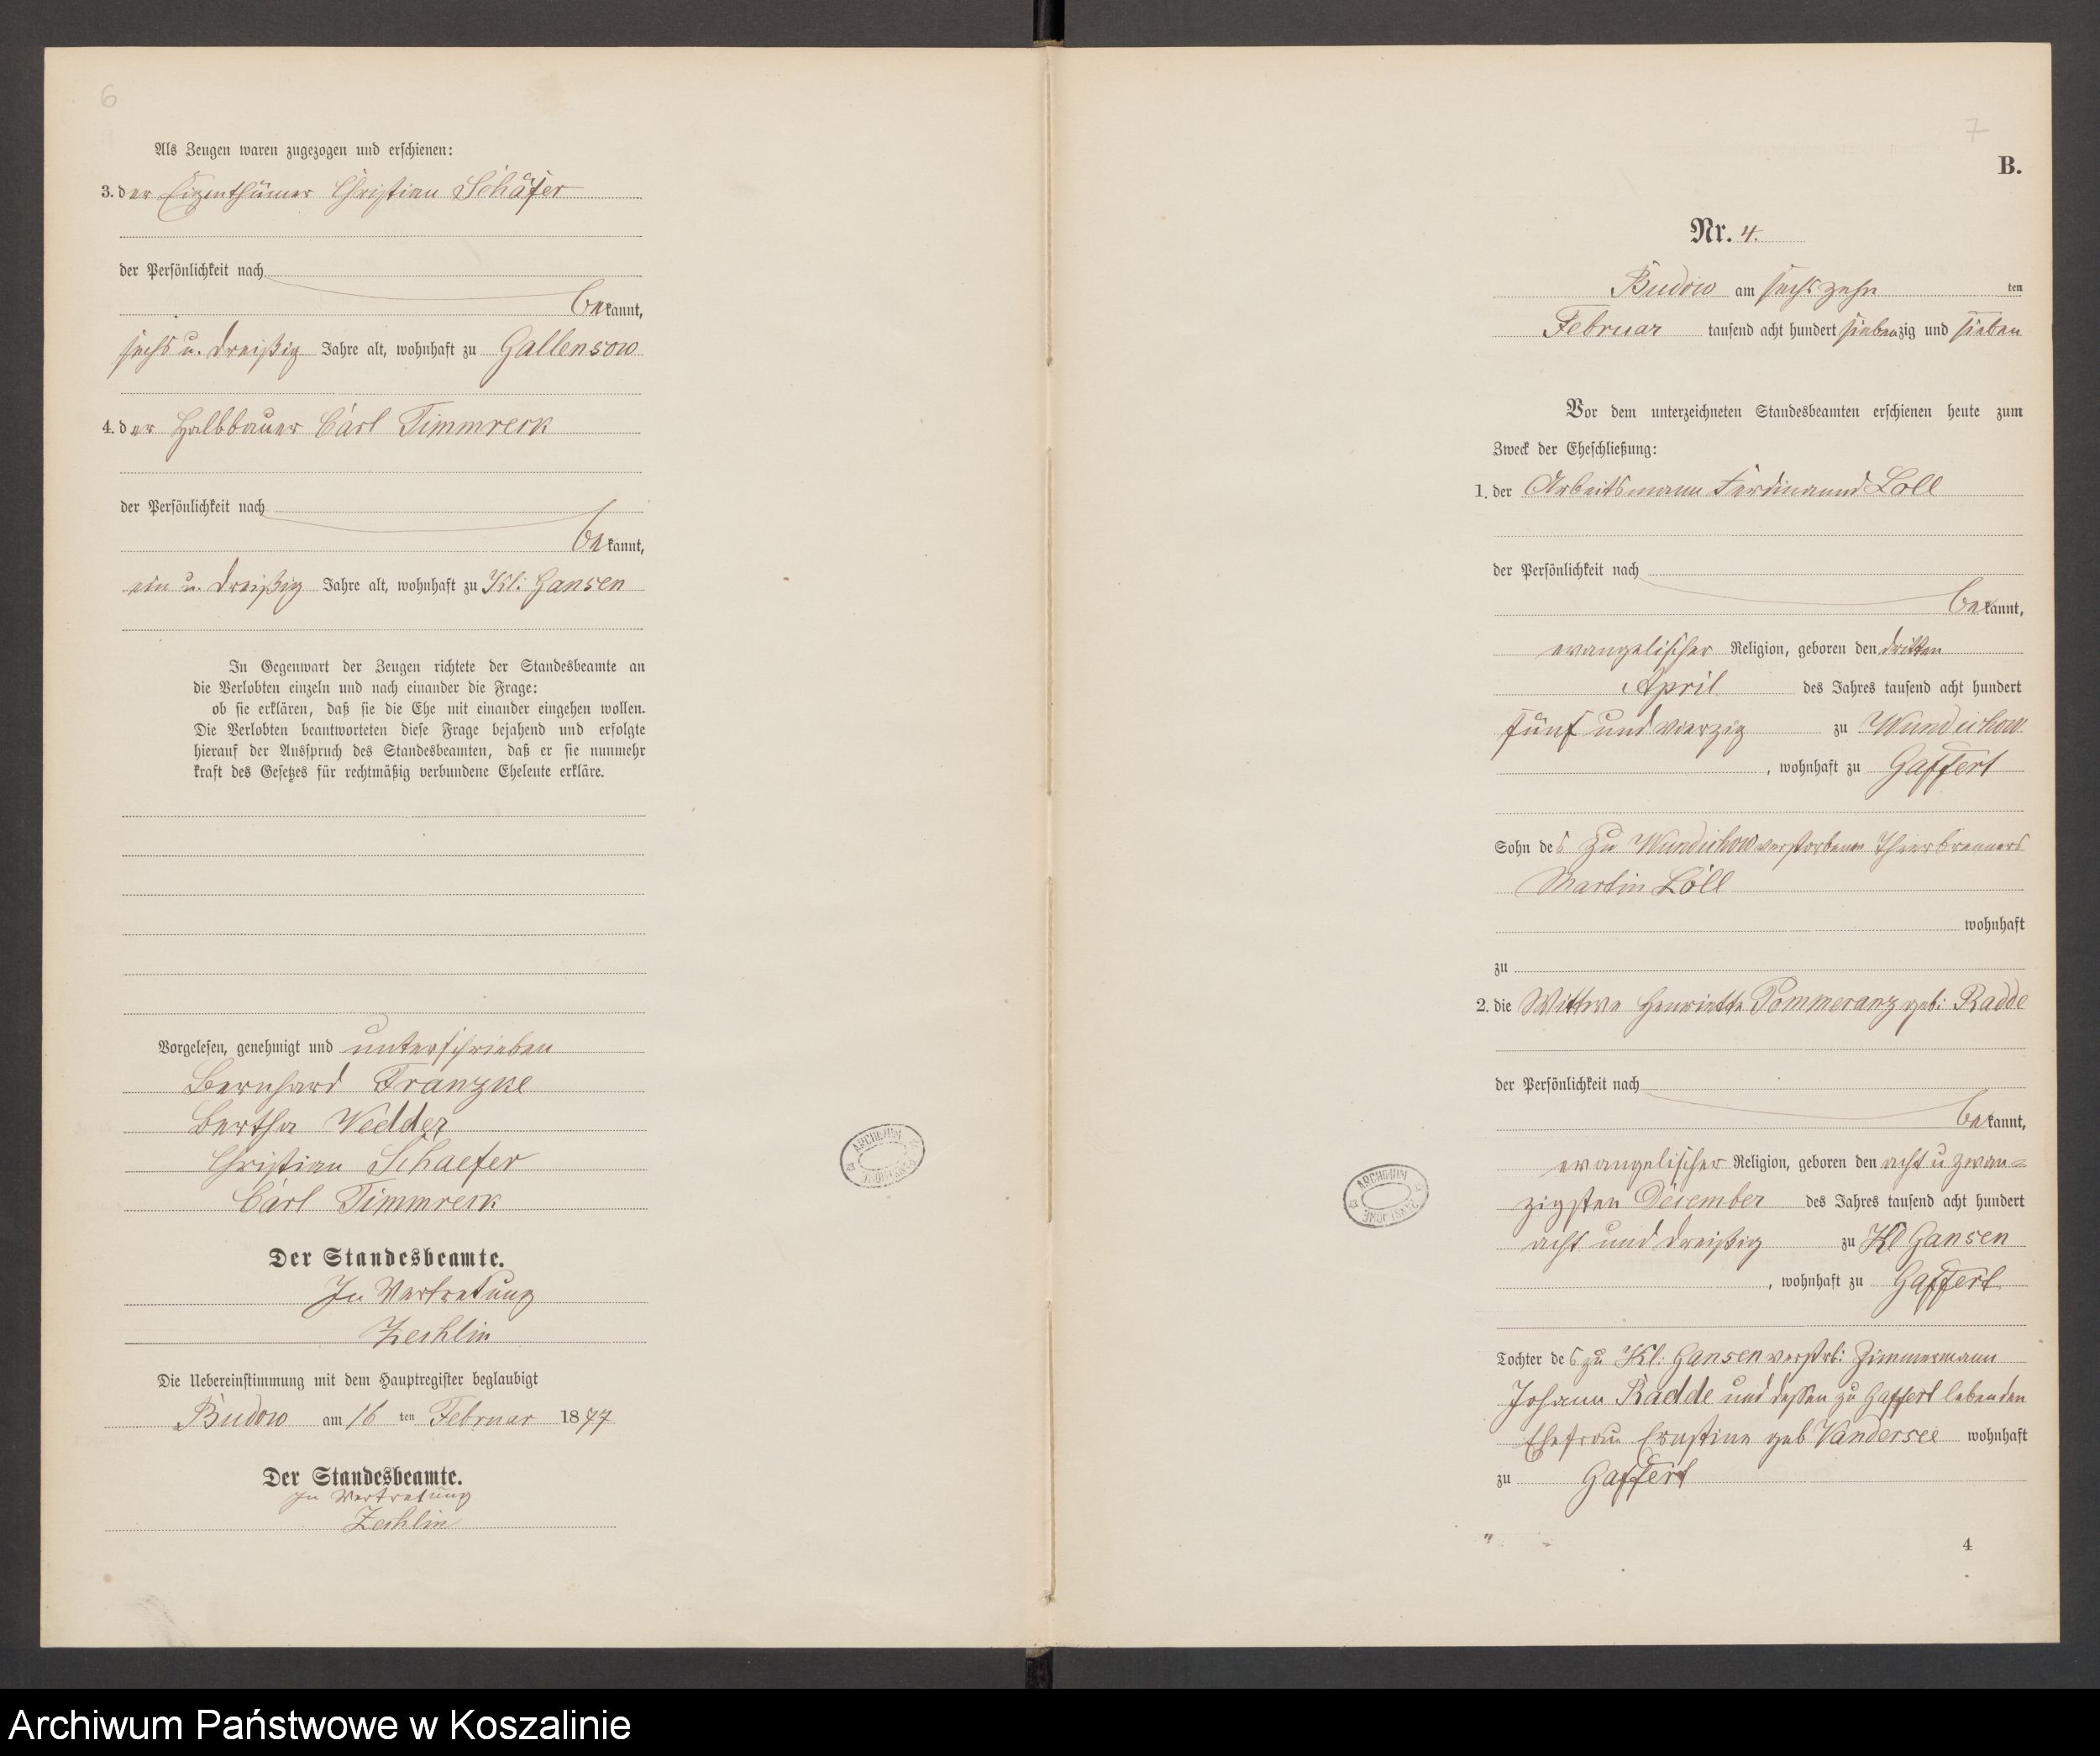 6
Als Zeugen waren zugezogen und erschienen:
3. der Eigenthümer Christian Schäfer
der Persönlichkeit nach
bekannt,
sechs u. dreißig Jahre alt, wohnhaft zu Gallensow
4. der Halbbauer Carl Timmreck
der Persönlichkeit nach
bekannt,
ein u. dreißig Jahre alt, wohnhaft zu Kl: Gansen
In Gegenwart der Zeugen richtete der Standesbeamte an
die Verlobten einzeln und nach einander die Frage:
ob sie erklären, daß sie die Ehe mit einander eingehen wollen.
Die Verlobten beantworteten diese Frage bejahend und erfolgte
hierauf der Ausspruch des Standesbeamten, daß er sie nunmehr
kraft des Gesetzes für rechtmäßig verbundene Eheleute erkläre.
Vorgelesen, genehmigt und unterschrieben
Bernhard Franzke
Bertha Wedder
Christian Schaefer
Carl Timmreck
Der Standesbeamte.
In Vertretung
Zechlin
Die Uebereinstimmung mit dem Hauptregister beglaubigt
Budow am 16 ten Februar 1877
Der Standesbeamte.
In Vertretung
Zechlin
7
B.
Nr. 4.
Budow am sechszehn ten
Februar tausend acht hundert siebenzig und sieben
Vor dem unterzeichneten Standesbeamten erschienen heute zum
Zweck der Eheschließung:
1. der Arbeitsmann Ferdinand Loll
der Persönlichkeit nach
bekannt,
evangelischer Religion, geboren den dritten
April des Jahres tausend acht hundert
fünf und vierzig zu Wundichow
, wohnhaft zu Gaffert
Sohn des zu Wundichow verstorbenen Theerbrenners
Martin Loll
wohnhaft
zu
2. die Wittwe Henriette Pommeranz geb: Radde
der Persönlichkeit nach
bekannt,
evangelischer Religion, geboren den acht u zwan=
zigsten December des Jahres tausend acht hundert
acht und dreißig zu Kl Gansen
, wohnhaft zu Gaffert
Tochter des zu Kl: Gansen verstrb: Zimmermann
Johann Radde und dessen zu Gaffert lebenden
Ehefrau Ernstine geb Vandersee wohnhaft
zu Gaffert
4
ARCHIWUM
ARCHIWUM
Archiwum Państwowe w Koszalinie